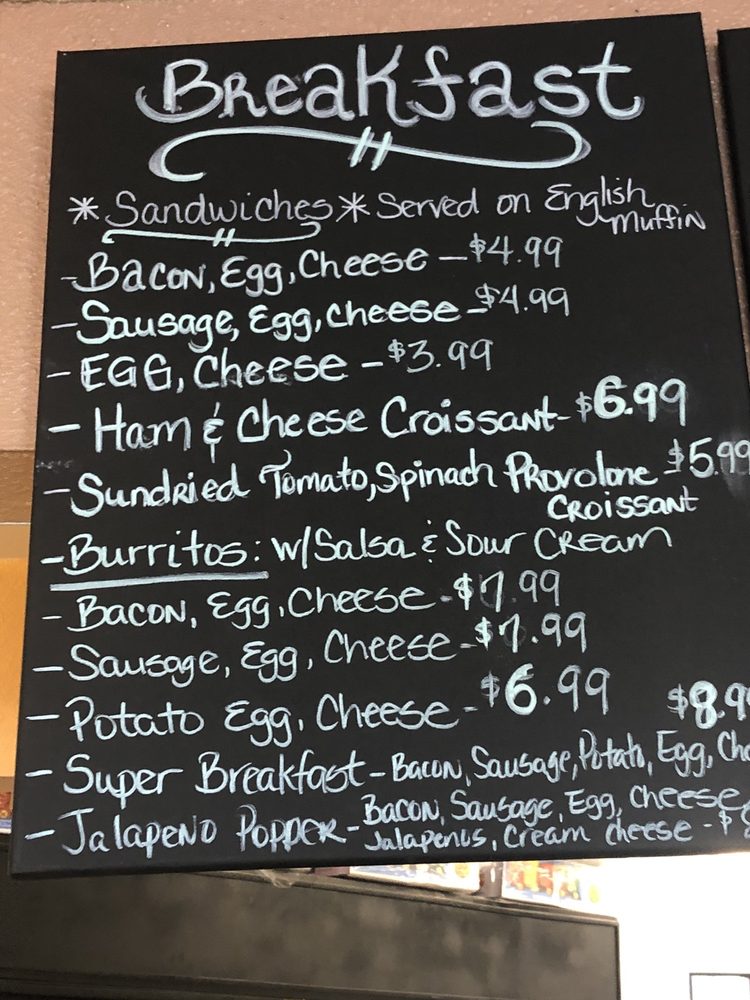 Breakfast
* Sandwiches * Served on English
Muffin
- Bacon, Egg, Cheese - $4.99
- Sausage, Egg, Cheese - $4.99
- EGG, Cheese - $3.99
- Ham & Cheese Croissant - $6.99
- Sundried Tomato, Spinach Provolone $5.99
Croissant
- Burritos: w/Salsa & Sour Cream
- Bacon, Egg, Cheese - $7.99
- Sausage, Egg, Cheese - $7.99
- Potato Egg, Cheese - $6.99
$8.9
- Super Breakfast - Bacon, Sausage, Potato, Egg, Che
- Jalapeno Popper - Bacon, Sausage, Egg, Cheese,
Jalapenos, Cream Cheese - $